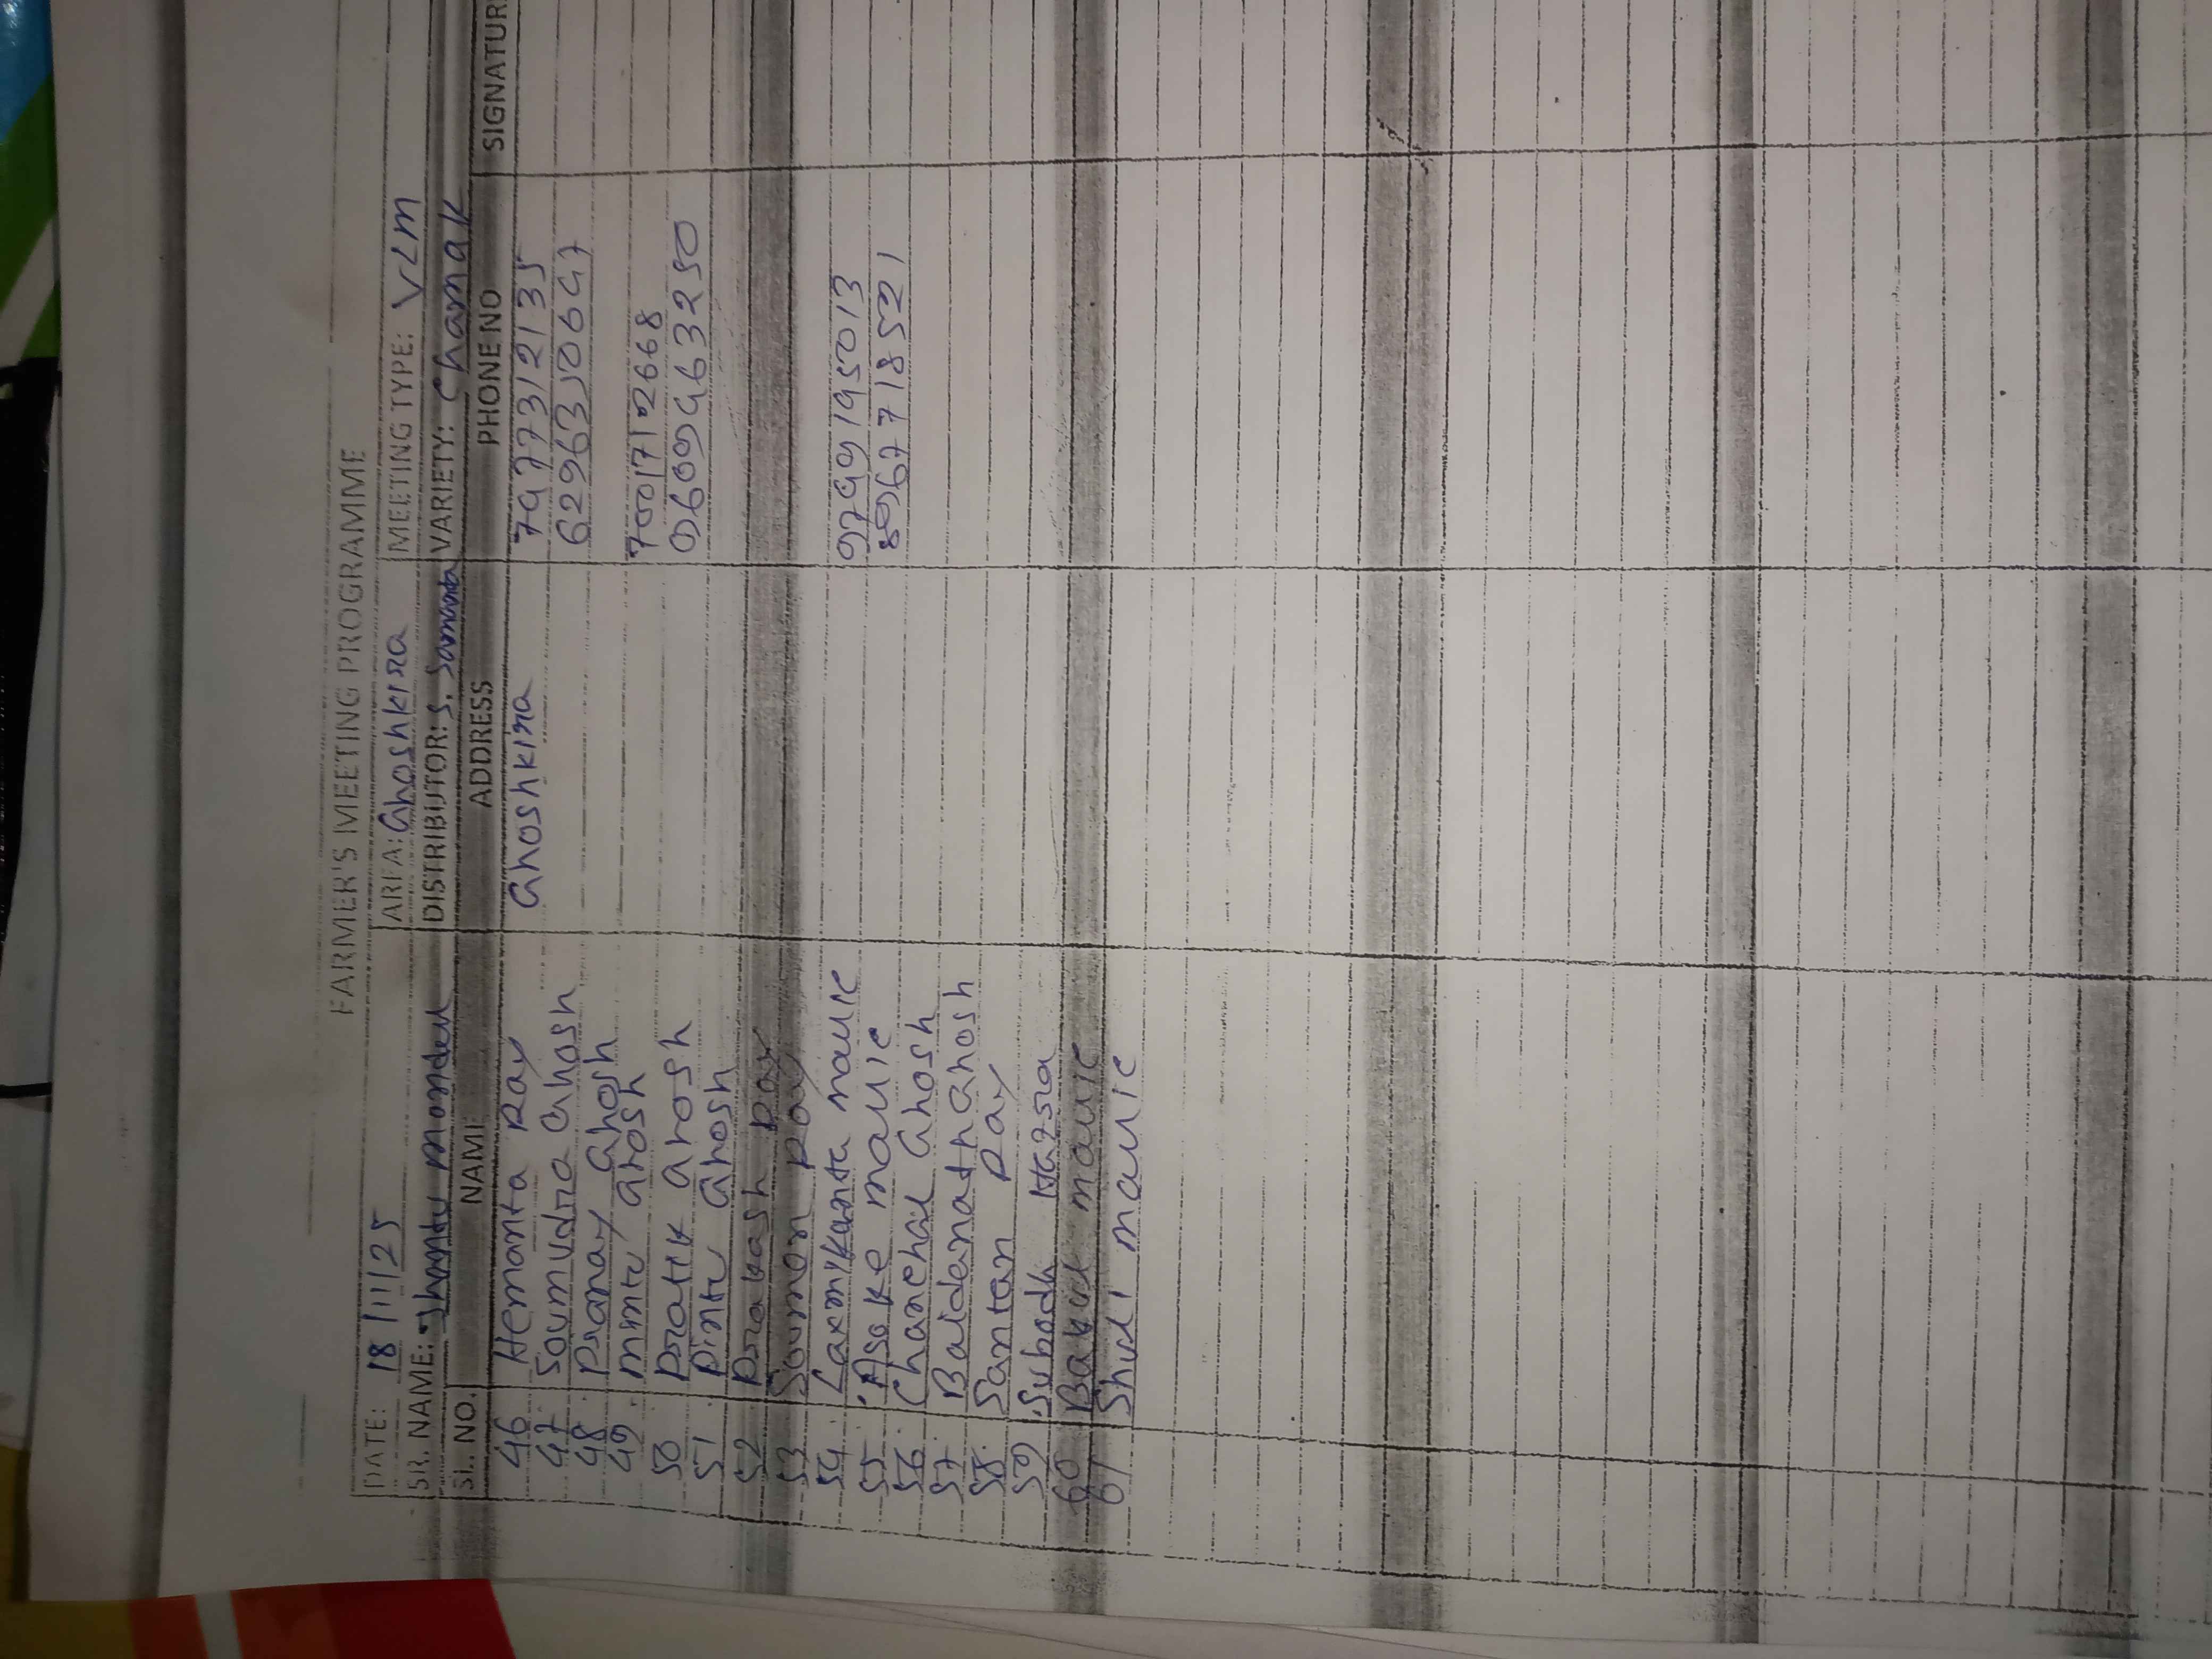 FARMER'S MEETING PROGRAMME
DATE: 18/11/25 AREA: Ghoshkira MEETING TYPE: VLM
SR. NAME: Shantu Mondal DISTRIBUTOR: S. Samanta VARIETY: Chamak
SL. NO. NAME ADDRESS PHONE NO SIGNATUR
46 Hemanta Ray Ghoshkira 7477312135
47 Soumudra Ghosh 6296350647
48 Pranay Ghosh
49 Mintu Ghosh 7001712668
50 Pratik Ghosh 9609463250
51 Pintu Ghosh
52 Prakash Ray
53 Soumen Ray
54 Laxmikanta malic 9749195013
55 Asoke malic 8967718521
56 Chanchal Ghosh
57 Baidanath Ghosh
58 Santan Ray
59 Subodh Hazra
60 Bakul malic
61 malic